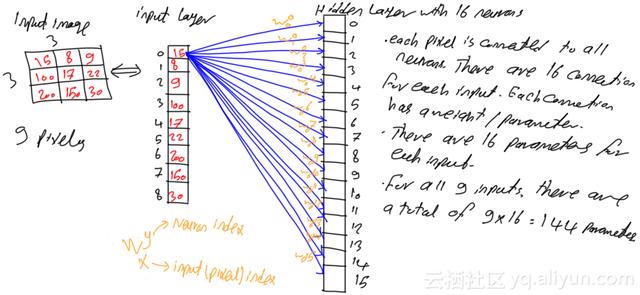 Input image
3
3
15 8 9
100 17 22
200 150 30
9 pixels
input Layer
0 15
1 8
2 9
3 100
4 17
5 22
6 200
7 150
8 30
W y → Neuron index
x → input (pixel) index
Hidden Layer with 16 neurons
0
1
2
3
4
5
6
7
8
9
10
11
12
13
14
15
. each pixel is connected to all
neurons. There are 16 connection
for each input. Each connection
has a weight / parameter.
. There are 16 parameters for
each input.
. For all 9 inputs, there are
a total of 9x16 = 144 parameters
云栖社区 yq.aliyun.com